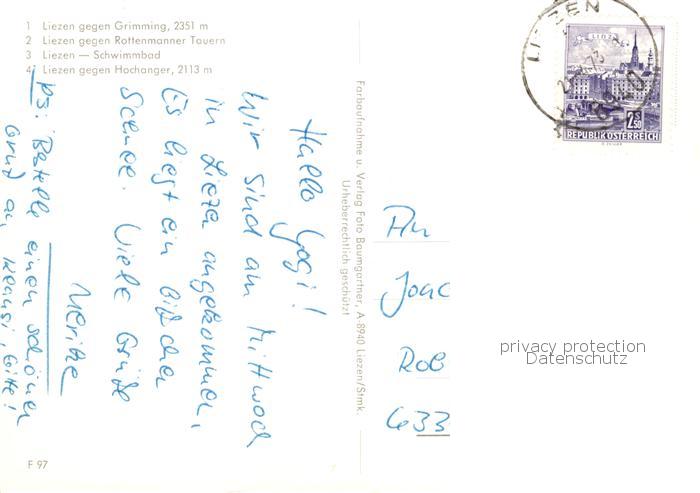 1 Liezen gegen Grimming, 2351 m
2 Liezen gegen Rottenmanner Tauern
3 Liezen — Schwimmbad
4 Liezen gegen Hochanger, 2113 m
Hallo Yogi!
Wir sind am Mittwoch
in Liezen angekommen,
Es liegt ein bißchen
Schnee. Viele Grüße
Merike
PS: Bestelle einen schönen
Gruß an Klausi, bitte!
Farbaufnahme u. Verlag Foto Baumgartner, A-8940 Liezen/Stmk.
Urheberrechtlich geschützt
F 97
LIEZEN
LINZ
2 S 50
REPUBLIK ÖSTERREICH
An
Joac
Rob
633
privacy protection
Datenschutz